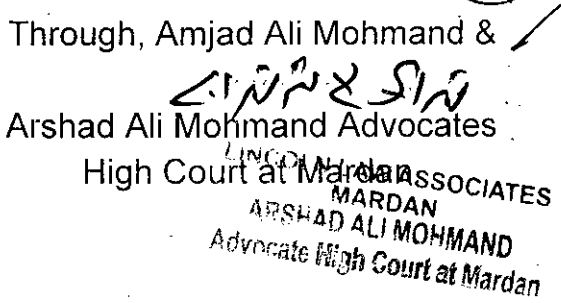 Through, Amjad Ali Mohmand &
Arshad Ali Mohmand Advocates
High Court at Mardan
LINCOLN LAW ASSOCIATES
MARDAN
ARSHAD ALI MOHMAND
Advocate High Court at Mardan